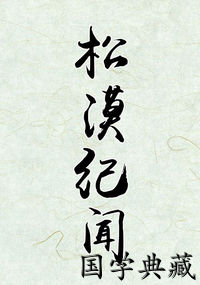 松漠纪闻
国学典藏